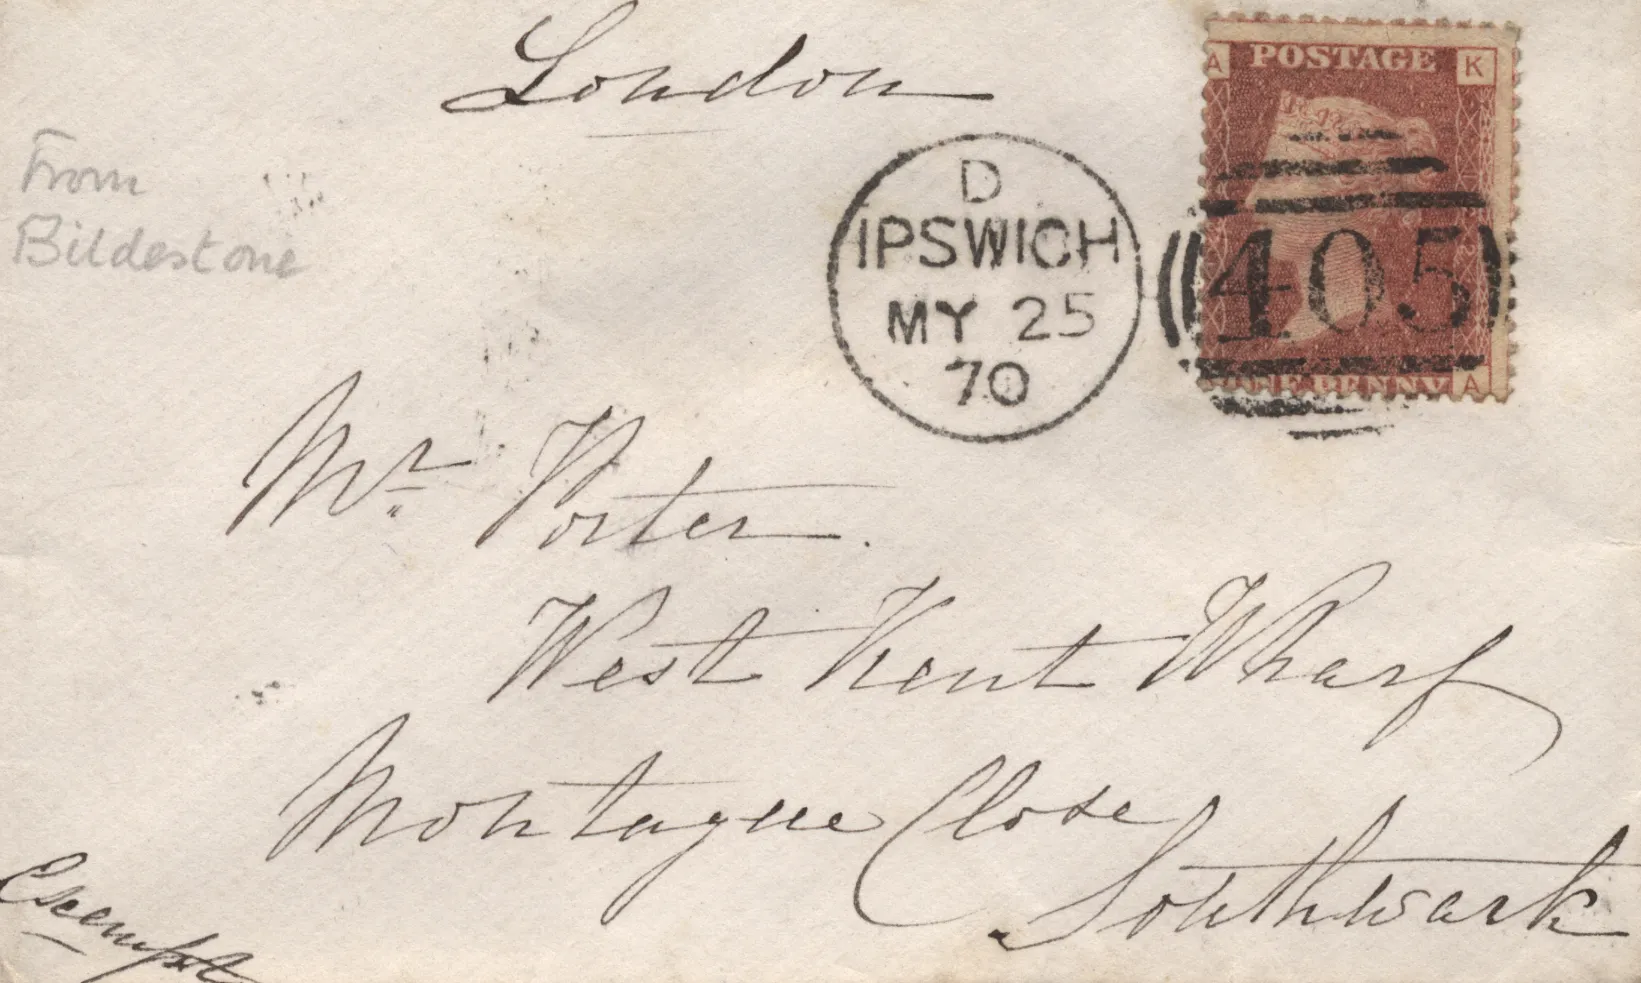 London
A POSTAGE K
From
Bildestone
D
IPSWICH
MY 25
70
405
ONE PENNY A
Mr Porter.
West Kent Wharf
Montague Close
Southwark
Exempt